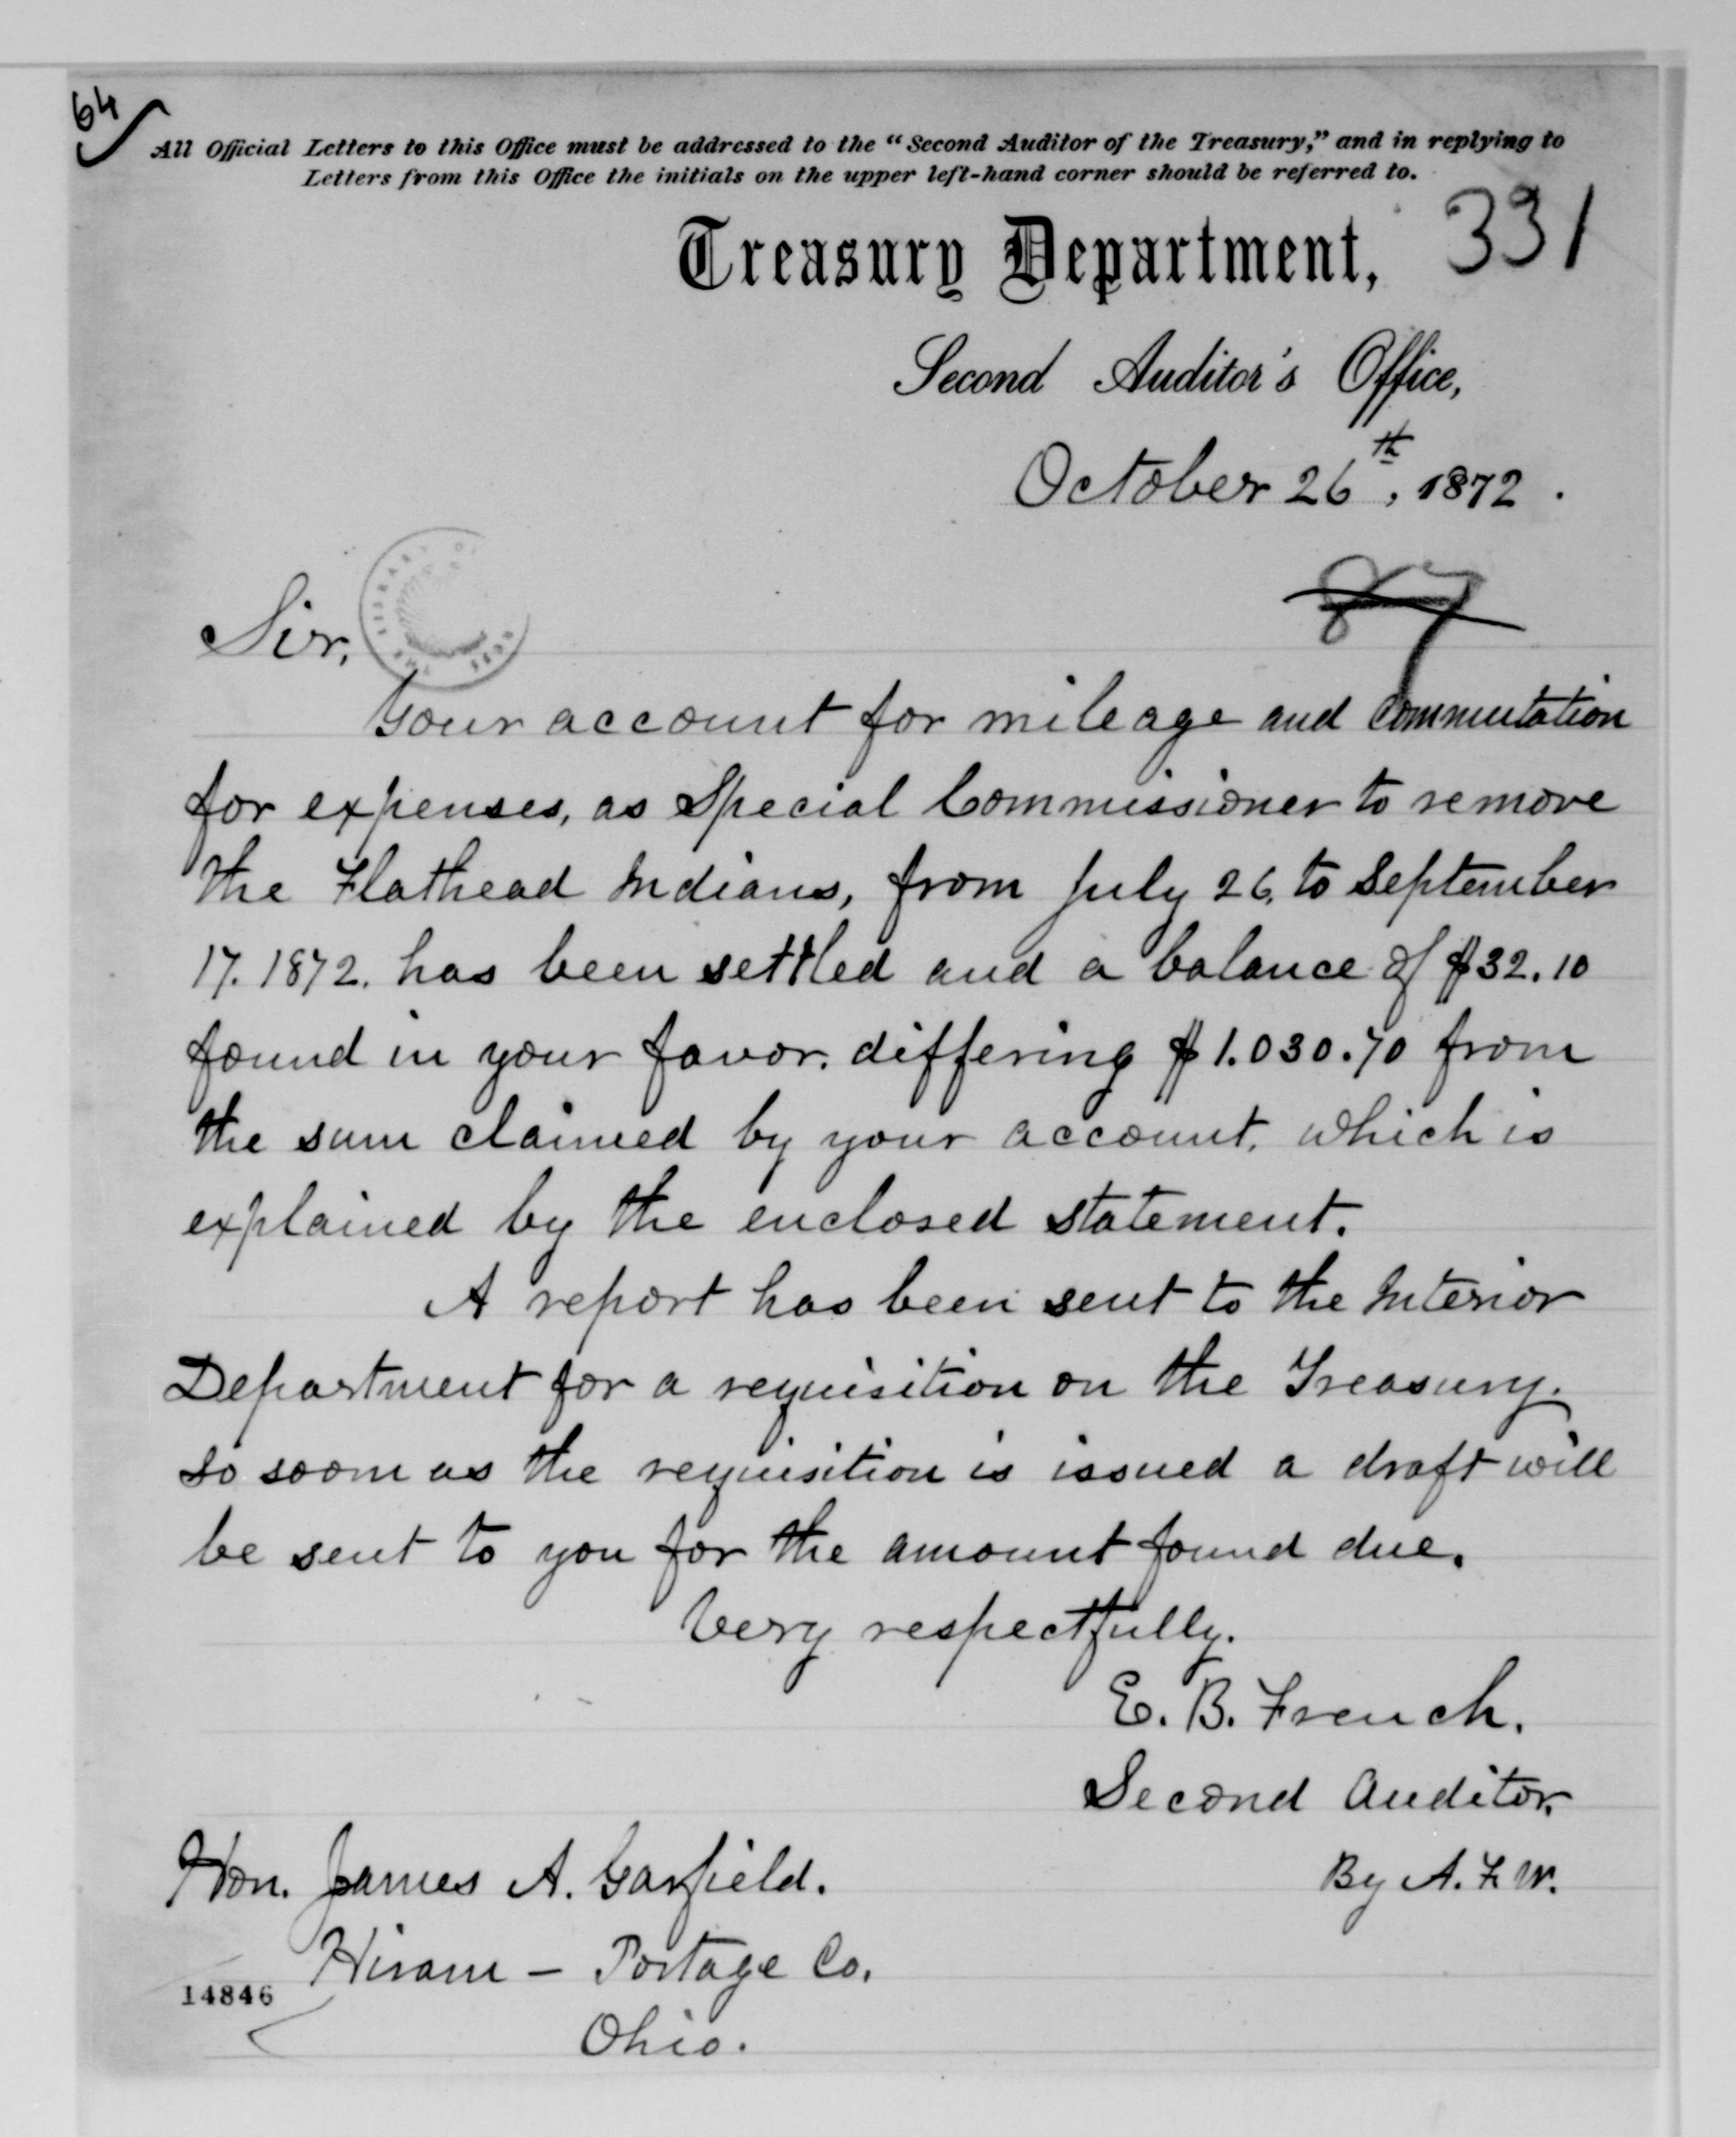 64
All Official Letters to this Office must be addressed to the “Second Auditor of the Treasury,” and in replying to
Letters from this Office the initials on the upper left-hand corner should be referred to.
331
Treasury Department,
Second Auditor's Office,
October 26th, 1872.
87
Sir,
Your account for mileage and commutation
for expenses, as Special Commissioner to remove
the Flathead Indians, from July 26, to September
17. 1872. has been settled and a balance of $32.10
found in your favor. differing $1.030.70 from
the sum claimed by your account. which is
explained by the enclosed statement.
A report has been sent to the Interior
Department for a requisition on the Treasury.
So soon as the requisition is issued a draft will
be sent to you for the amount found due.
Very respectfully.
E. B. French.
Second Auditor.
By A. F. W.
Hon. James A. Garfield.
Hiram – Portage Co.
14846
Ohio.